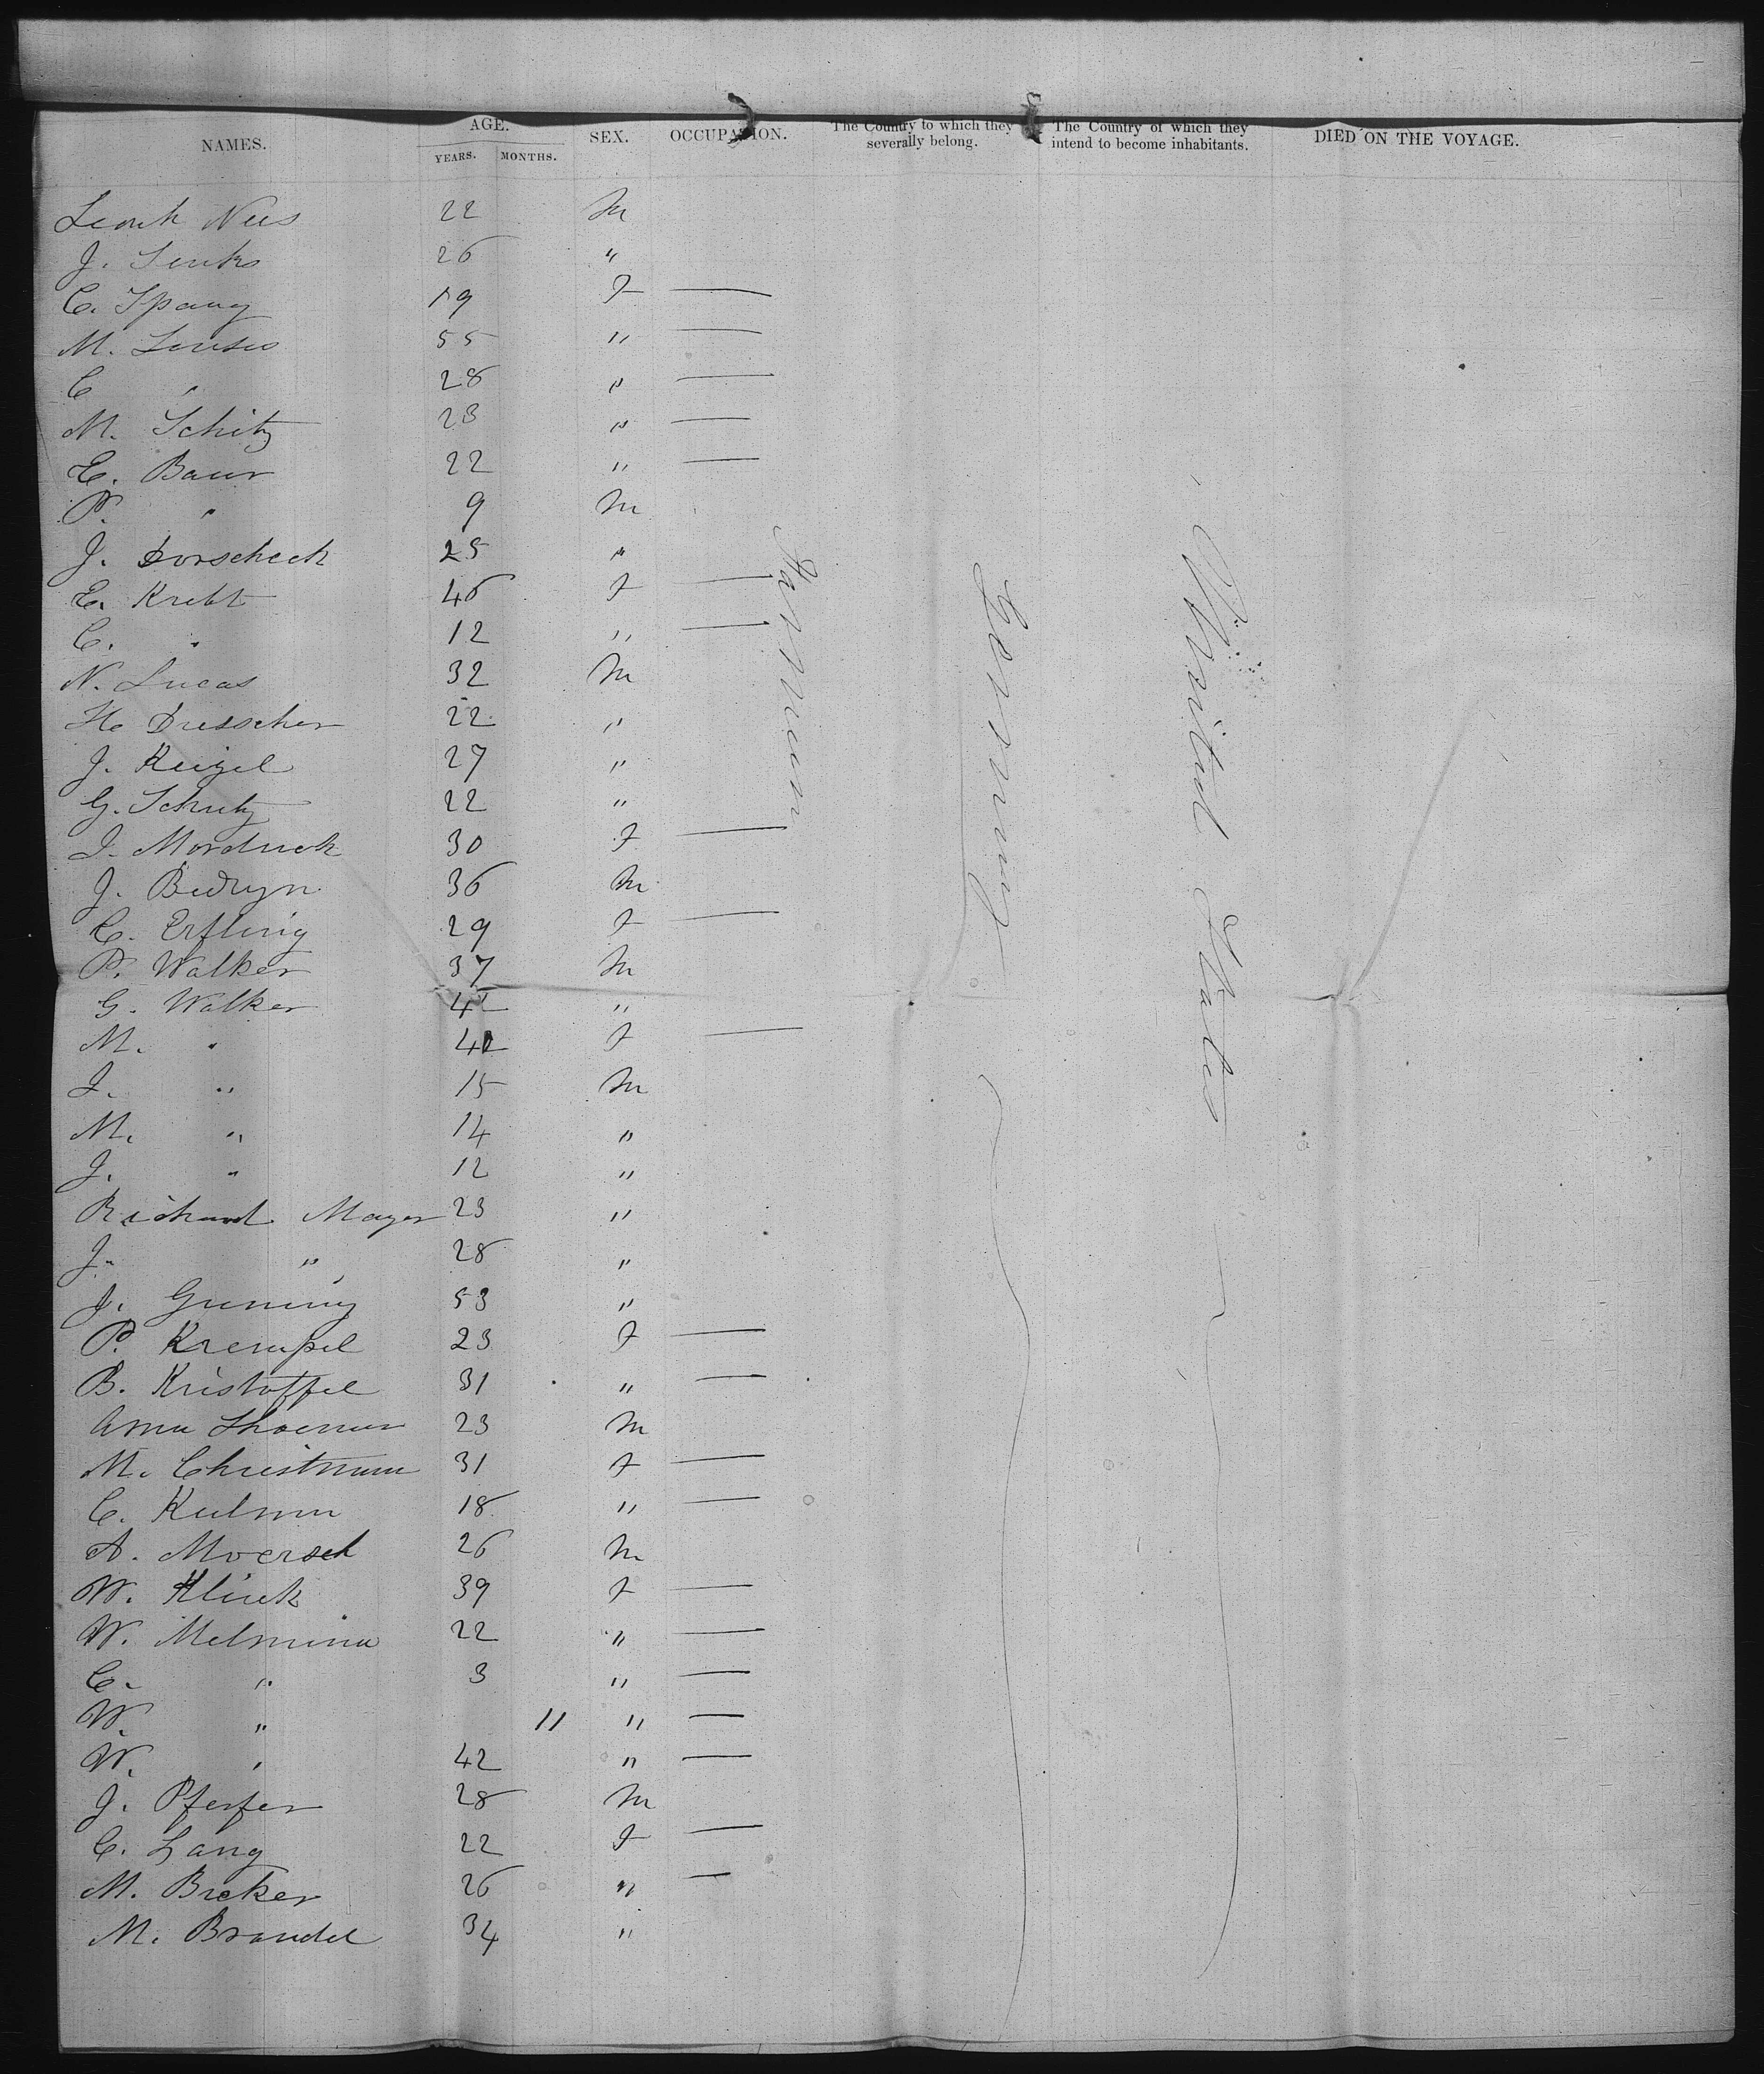 NAMES. AGE. SEX. OCCUPATION. The Country to which they severally belong. The Country of which they intend to become inhabitants. DIED ON THE VOYAGE.
YEARS. MONTHS.
Nees 22 M
J. 26 "
C. Spang 19 F —
M. 55 " —
C " 28 " —
M. Schitz 23 " —
E. Baur 22 " —
P. " 9 M
J. Dorscheck 25 "
E. Krebt 46 F —
C. " 12 " —
N. Lucas 32 M
H. Dresscher 22 "
J. Keizel 27 "
G. Schutz 22 "
J. Morduck 30 F —
J. 36 M
C. Erfling 29 F —
P. Walker 37 M
G. Walker 42 "
M. " F —
J. " 15 M
M. " 14 "
J. " 12 "
Richard Mayer 23 "
J. " 28 "
J. Gruning 53 "
P. Krempel 23 F —
B. Kristoffel 31 " —
23 M
M. Christmann 31 F —
C. Kulmm 18 " —
A. Moersch 26 M
W. Klinck 39 F —
W. Melmina 22 " —
C. " 3 " —
W. " 11 " —
W. " 42 " —
J. Pfeifer 28 M
C. Lang 22 F —
M. Breker 26 " —
M. Brandel 34 "
Farmmen
Germany
United States